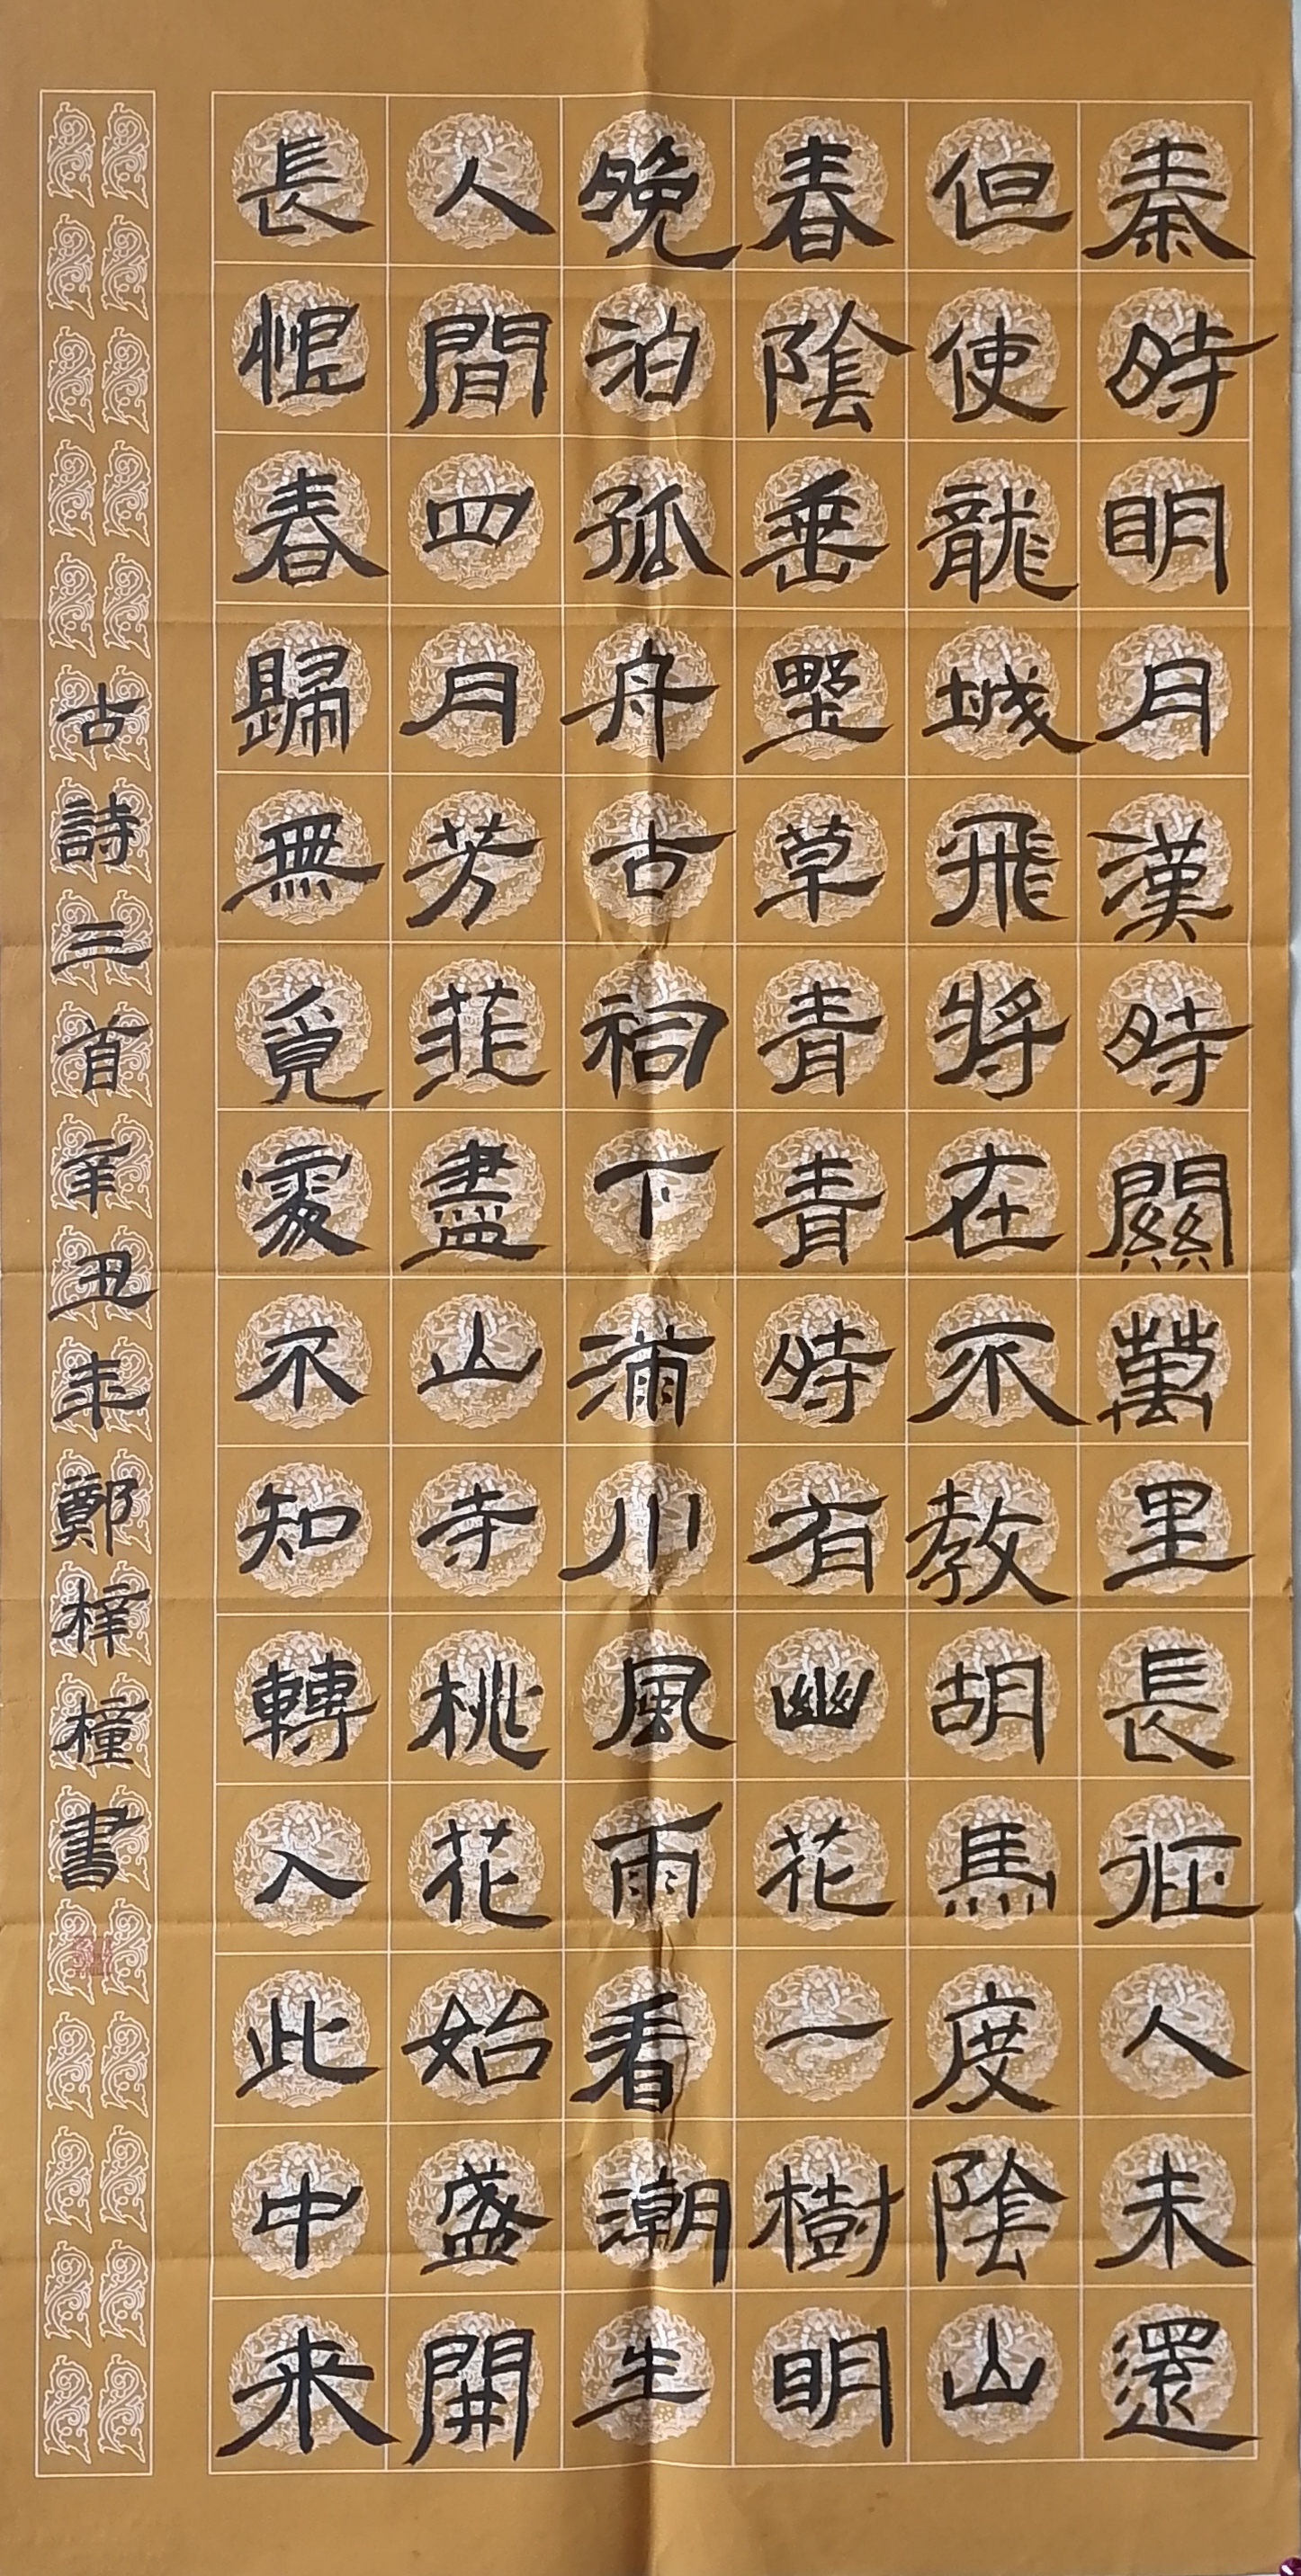 秦時明月漢時關萬里長征人未還
但使龍城飛將在不教胡馬度陰山
春陰垂墅草青青時有幽花一樹明
晚泊孤舟古祠下滿川風雨看潮生
人間四月芳菲盡山寺桃花始盛開
長恨春歸無覓處不知轉入此中来
古詩三首辛丑年鄭梓橦書